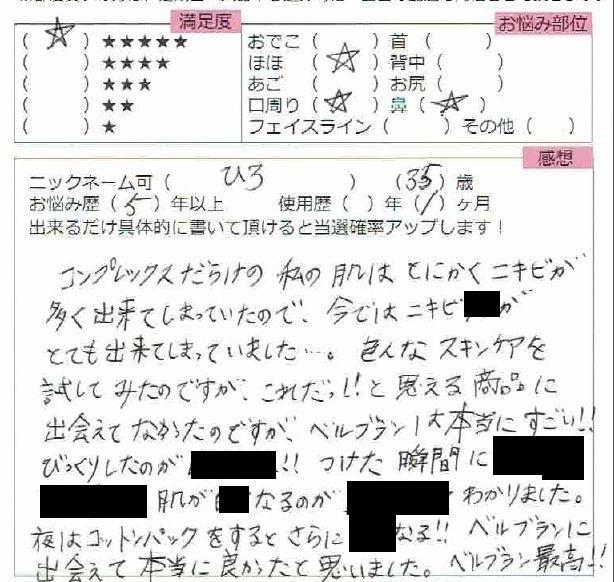 満足度
お悩み部位
( ☆ ) ★★★★★ おでこ ( ) 首 ( )
( ) ★★★★ ほほ ( ☆ ) 背中 ( )
( ) ★★★ あご ( ) お尻 ( )
( ) ★★ 口周り ( ☆ ) 鼻 ( ☆ )
( ) ★ フェイスライン ( ) その他 ( )
感想
ニックネーム可 ( ひろ ) ( 35 ) 歳
お悩み歴 ( 5 ) 年以上 使用歴 ( ) 年 ( 1 ) ヶ月
出来るだけ具体的に書いて頂けると当選確率アップします!
コンプレックスだらけの私の肌はとにかくニキビが
多く出来てしまっていたので、今ではニキビ が
とても出来てしまっていました…。色んなスキンケアを
試してみたのですが、これだっ!!と思える商品に
出会えてなかったのですが、ベルブランは本当にすごい!!
びっくりしたのが !! つけた瞬間に
肌が なるのが わかりました。
夜はコットンパックをするとさらに なる!! ベルブランに
出会えて本当に良かったと思いました。ベルブラン最高!!